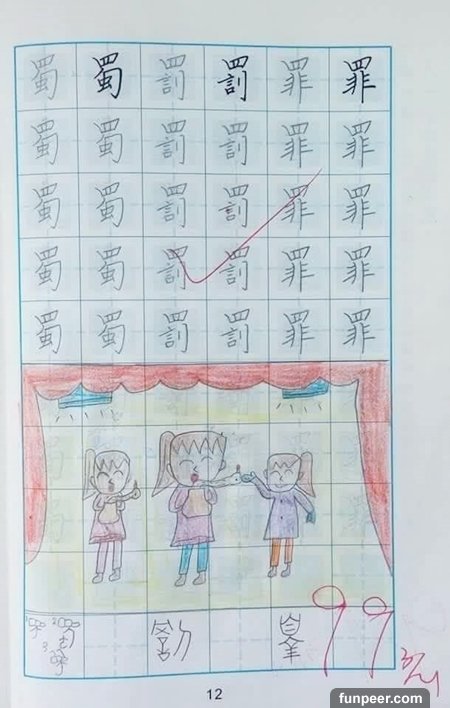 蜀 蜀 罰 罰 罪 罪
蜀 蜀 罰 罰 罪 罪
蜀 蜀 罰 罰 罪 罪
蜀 蜀 罰 罰 罪 罪
蜀 蜀 罰 罰 罪 罪
99
12
funpeer.com